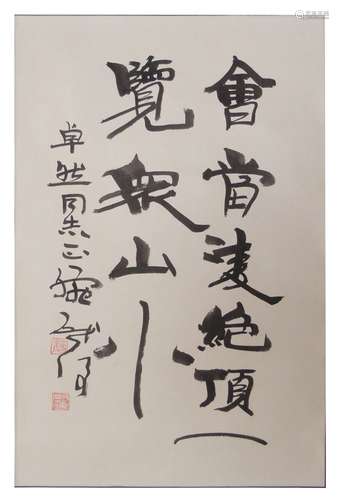 會當凌絕頂一
覽眾山小
卓然同志正腕